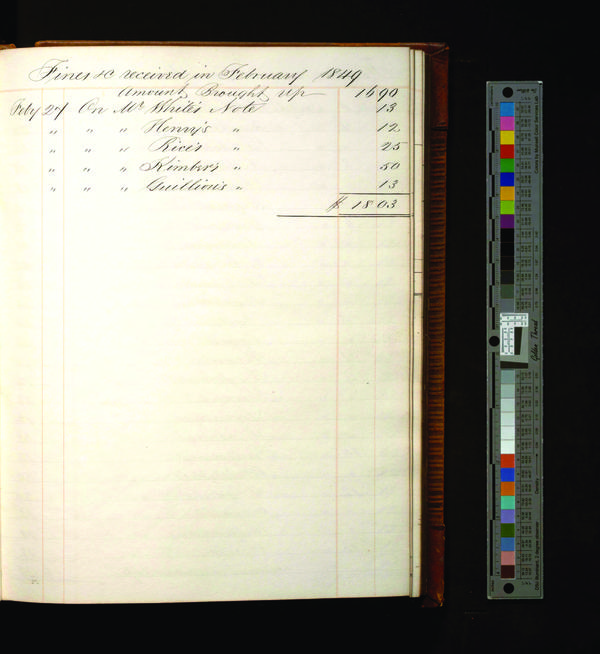 Fines &c received in February 1849
Amount Brought up 16 90
Feby 27 On Mr White's Note 13
" " " Henry's " 12
" " " Rice's " 25
" " " Kimber's " 50
" " " Guillion's " 13
$ 18 03